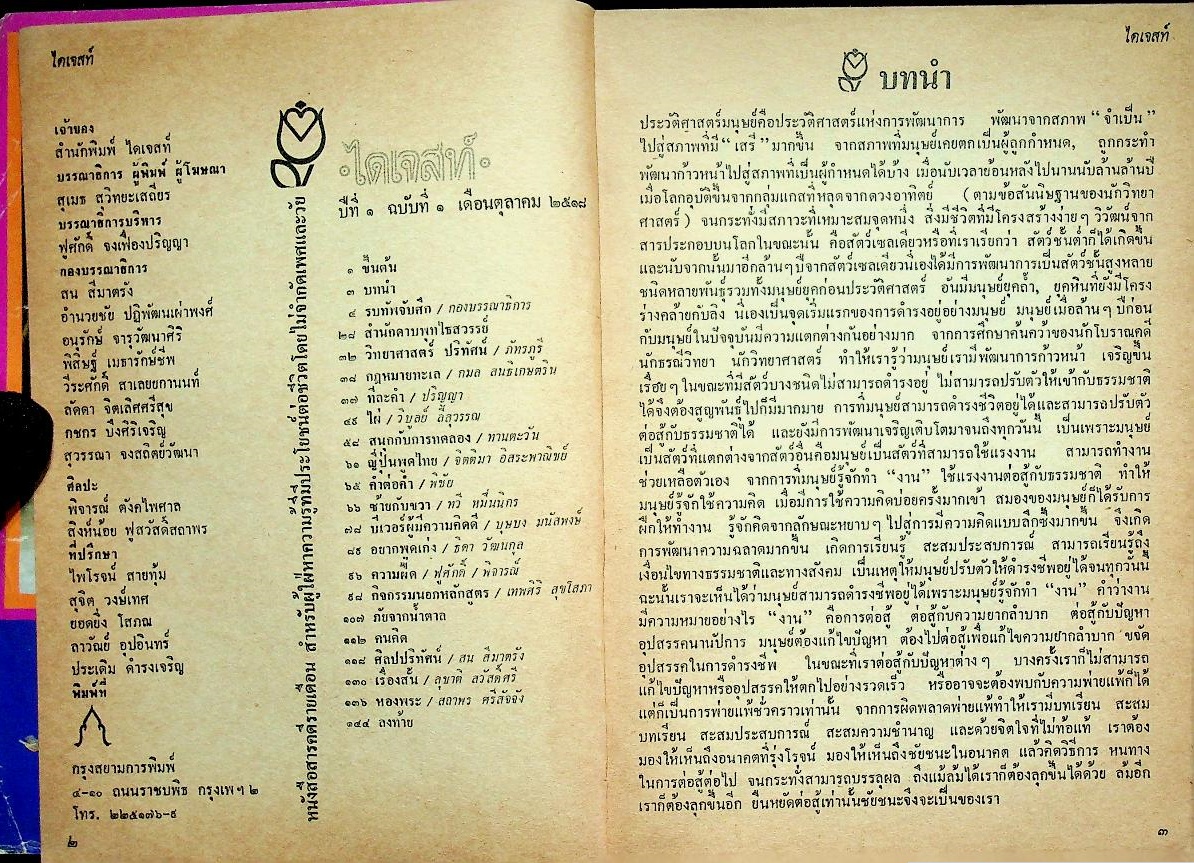 ไดเจสท์
เจ้าของ
สำนักพิมพ์ ไดเจสท์
บรรณาธิการ ผู้พิมพ์ ผู้โฆษณา
สุเมธ สุวิทยะเสถียร
บรรณาธิการบริหาร
ฟูศักดิ์ จงเฟื่องปริญญา
กองบรรณาธิการ
สน สีมาตรัง
อำนวยชัย ปฏิพัฒนเผ่าพงศ์
อนุรักษ์ จารุวัฒนาศิริ
พิสิษฐ์ เมธารักษ์ชีพ
วีระศักดิ์ สาเลยยกานนท์
ลัดดา จิตเลิศศรีสุข
กชกร บึงศิริเจริญ
สุวรรณา จงสถิตย์วัฒนา
ศิลปะ
พิจารณ์ ตังคไพศาล
สิงห์น้อย ฟูสวัสดิ์สถาพร
ที่ปรึกษา
ไพโรจน์ สายทุ้ม
สุจิต วงษ์เทศ
ยอดยิ่ง โสภณ
ลาวัณย์ อุปอินทร์
ประเดิม ดำรงเจริญ
พิมพ์ที่
กรุงสยามการพิมพ์
๔-๑๐ ถนนราชบพิธ กรุงเทพฯ ๒
โทร. ๒๒๕๑๗๖-๙
๒
หนังสือสารคดีรายเดือน สำหรับผู้ใฝ่หาความรู้ที่มีประโยชน์ต่อชีวิตโดยไม่จำกัดเพศและวัย
·ไดเจสท์·
ปีที่ ๑ ฉบับที่ ๑ เดือนตุลาคม ๒๕๑๘
๑ ขึ้นต้น
๓ บทนำ
๔ รบทัพจับศึก / กองบรรณาธิการ
๒๘ สำนักดาบพุทไธสวรรย์
๓๒ วิทยาศาสตร์ ปริทัศน์ / ภัทรภูรี
๓๘ กฎหมายทะเล / กมล สนธิเกษตริน
๓๗ ทีละคำ / ปริญญา
๔๙ ไผ่ / วิบูลย์ ลี้สุวรรณ
๕๘ สนุกกับการทดลอง / ทานตะวัน
๖๑ ญี่ปุ่นพูดไทย / จิตติมา อิสระพาณิชย์
๖๕ คำต่อคำ / พิชัย
๖๖ ซ้ายกับขวา / ทวี หมื่นนิกร
๗๘ บีเวอร์ผู้มีความคิดดี / บุษบง มนัสพงษ์
๘๙ อยากพูดเก่ง / ธิดา วัฒนกุล
๙๖ ความฝืด / ฟูศักดิ์ / พิจารณ์
๙๘ กิจกรรมนอกหลักสูตร / เทพศิริ สุขโสภา
๑๐๗ ภัยจากน้ำตาล
๑๑๒ คนคิด
๑๑๘ ศิลปปริทัศน์ / สน สีมาตรัง
๑๓๐ เรื่องสั้น / สุชาติ สวัสดิ์ศรี
๑๓๖ ห้องพระ / สถาพร ศรีสัจจัง
๑๔๔ ลงท้าย
ไดเจสท์
บทนำ
ประวัติศาสตร์มนุษย์คือประวัติศาสตร์แห่งการพัฒนาการ พัฒนาจากสภาพ “จำเป็น”
ไปสู่สภาพที่มี “เสรี” มากขึ้น จากสภาพที่มนุษย์เคยตกเป็นผู้ถูกกำหนด, ถูกกระทำ
พัฒนาก้าวหน้าไปสู่สภาพที่เป็นผู้กำหนดได้บ้าง เมื่อนับเวลาย้อนหลังไปนานนับล้านล้านปี
เมื่อโลกอุบัติขึ้นจากกลุ่มแกสที่หลุดจากดวงอาทิตย์ (ตามข้อสันนิษฐานของนักวิทยา
ศาสตร์) จนกระทั่งมีสภาวะที่เหมาะสมจุดหนึ่ง สิ่งมีชีวิตที่มีโครงสร้างง่ายๆ วิวัฒน์จาก
สารประกอบบนโลกในขณะนั้น คือสัตว์เซลเดียวหรือที่เราเรียกว่า สัตว์ชั้นต่ำก็ได้เกิดขึ้น
และนับจากนั้นมาอีกล้านๆปีจากสัตว์เซลเดียวนี่เองได้มีการพัฒนาการเป็นสัตว์ชั้นสูงหลาย
ชนิดหลายพันธุ์รวมทั้งมนุษย์ยุคก่อนประวัติศาสตร์ อันมีมนุษย์ยุคถ้ำ, ยุคหินที่ยังมีโครง
ร่างคล้ายกับลิง นี่เองเป็นจุดเริ่มแรกของการดำรงอยู่อย่างมนุษย์ มนุษย์เมื่อล้านๆปีก่อน
กับมนุษย์ในปัจจุบันมีความแตกต่างกันอย่างมาก จากการศึกษาค้นคว้าของนักโบราณคดี
นักธรณีวิทยา นักวิทยาศาสตร์ ทำให้เรารู้ว่ามนุษย์เรามีพัฒนาการก้าวหน้า เจริญขึ้น
เรื่อยๆ ในขณะที่มีสัตว์บางชนิดไม่สามารถดำรงอยู่ ไม่สามารถปรับตัวให้เข้ากับธรรมชาติ
ได้จึงต้องสูญพันธุ์ไปก็มีมากมาย การที่มนุษย์สามารถดำรงชีวิตอยู่ได้และสามารถปรับตัว
ต่อสู้กับธรรมชาติได้ และยังมีการพัฒนาเจริญเติบโตมาจนถึงทุกวันนี้ เป็นเพราะมนุษย์
เป็นสัตว์ที่แตกต่างจากสัตว์อื่นคือมนุษย์เป็นสัตว์ที่สามารถใช้แรงงาน สามารถทำงาน
ช่วยเหลือตัวเอง จากการที่มนุษย์รู้จักทำ “งาน” ใช้แรงงานต่อสู้กับธรรมชาติ ทำให้
มนุษย์รู้จักใช้ความคิด เมื่อมีการใช้ความคิดบ่อยครั้งมากเข้า สมองของมนุษย์ก็ได้รับการ
ฝึกให้ทำงาน รู้จักคิดจากลักษณะหยาบๆ ไปสู่การมีความคิดแบบลึกซึ้งมากขึ้น จึงเกิด
การพัฒนาความฉลาดมากขึ้น เกิดการเรียนรู้ สะสมประสบการณ์ สามารถเรียนรู้ถึง
เงื่อนไขทางธรรมชาติและทางสังคม เป็นเหตุให้มนุษย์ปรับตัวให้ดำรงชีพอยู่ได้จนทุกวันนี้
ฉะนั้นเราจะเห็นได้ว่ามนุษย์สามารถดำรงชีพอยู่ได้เพราะมนุษย์รู้จักทำ “งาน” คำว่างาน
มีความหมายอย่างไร “งาน” คือการต่อสู้ ต่อสู้กับความยากลำบาก ต่อสู้กับปัญหา
อุปสรรคนานัปการ มนุษย์ต้องแก้ไขปัญหา ต้องไปต่อสู้เพื่อแก้ไขความยากลำบาก ขจัด
อุปสรรคในการดำรงชีพ ในขณะที่เราต่อสู้กับปัญหาต่างๆ บางครั้งเราก็ไม่สามารถ
แก้ไขปัญหาหรืออุปสรรคให้ตกไปอย่างรวดเร็ว หรืออาจจะต้องพบกับความพ่ายแพ้ก็ได้
แต่ก็เป็นการพ่ายแพ้ชั่วคราวเท่านั้น จากการผิดพลาดพ่ายแพ้ทำให้เรามีบทเรียน สะสม
บทเรียน สะสมประสบการณ์ สะสมความชำนาญ และด้วยจิตใจที่ไม่ท้อแท้ เราต้อง
มองให้เห็นถึงอนาคตที่รุ่งโรจน์ มองให้เห็นถึงชัยชนะในอนาคต แล้วคิดวิธีการ หนทาง
ในการต่อสู้ต่อไป จนกระทั่งสามารถบรรลุผล ถึงแม้ล้มได้เราก็ต้องลุกขึ้นได้ด้วย ล้มอีก
เราก็ต้องลุกขึ้นอีก ยืนหยัดต่อสู้เท่านั้นชัยชนะจึงจะเป็นของเรา
๓